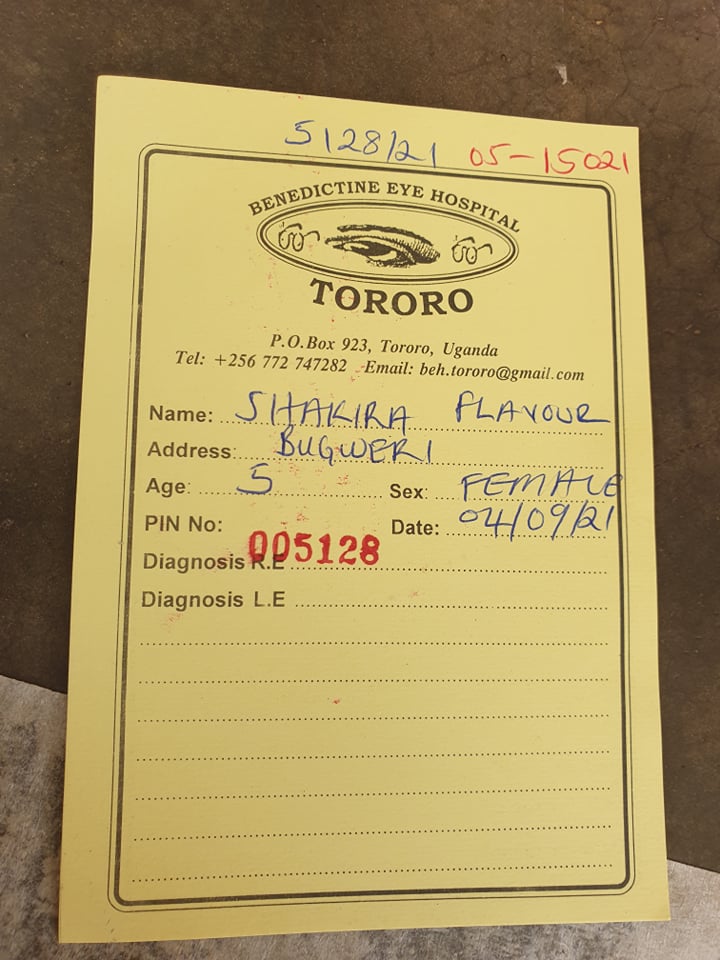 5128/21 05-15021
BENEDICTINE EYE HOSPITAL
TORORO
P.O.Box 923, Tororo, Uganda
Tel: +256 772 747282 Email: beh.tororo@gmail.com
Name: SHAKIRA FLAVOUR
Address: BUGWERI
Age: 5 Sex: FEMALE
PIN No: 005128 Date: 04/09/21
Diagnosis R.E
Diagnosis L.E